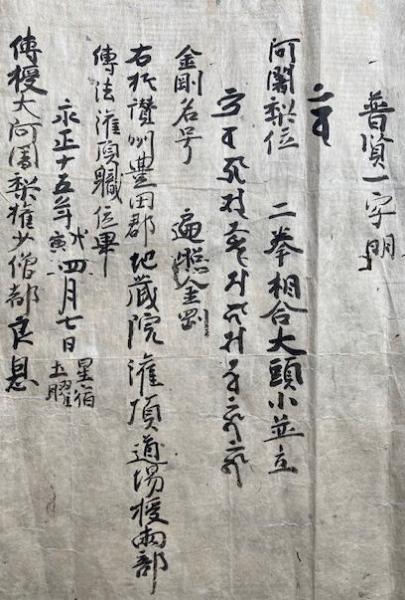 普賢一字明
阿闍梨位 二拳相合大頭小並立
金剛名号 遍照金剛
右於讃州豊田郡地蔵院灌頂道場授兩部
傳法灌頂職位畢
永正十五年戊寅四月七日 星宿 土曜
傳授大阿闍梨權少僧都良